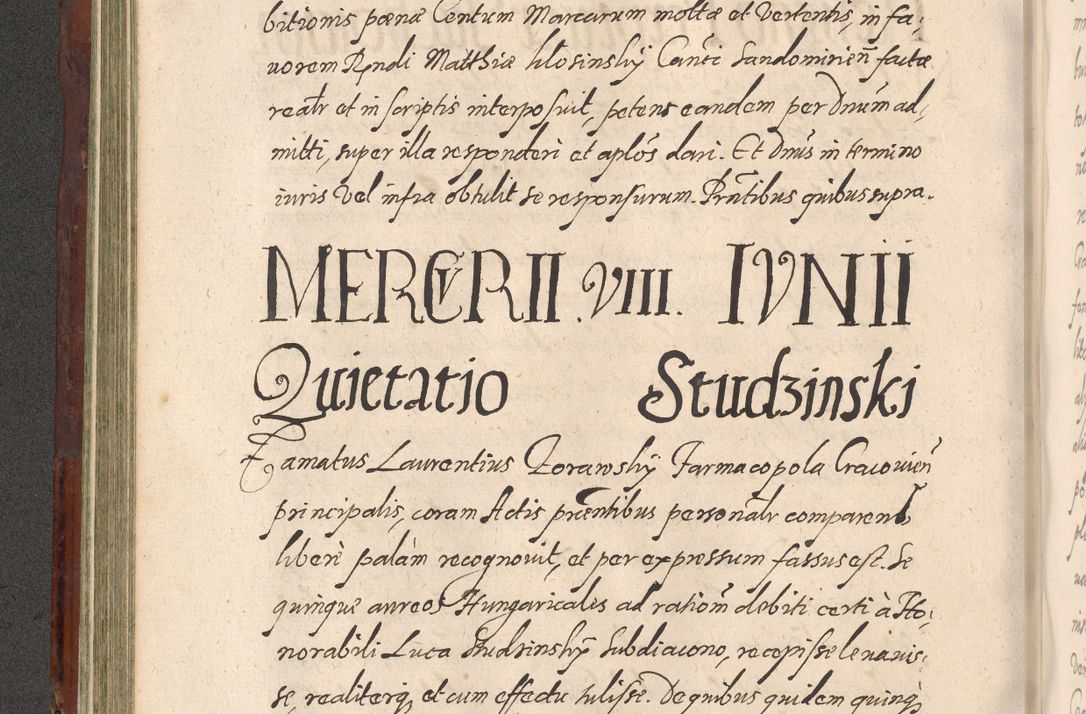 bitionis poenæ Centum Marcarum mottæ et Vertentis, in fa-
uorem Rndi Matthiæ Klosinsky Canci Sandomirien̄ factæ
realr et in scriptis interposuit, petens eandem per Dnum ad-
mitti, super illa responderi et aplos dari. Et Dnus in termino
iuris Vel infra obtulit se responsurum. Prntibus quibus supra.
MERCVRII .VIII. IVNII
Quietatio Studzinski
Famatus Laurentius Zorawsky Farmacopola Cracouien̄
principalis, coram Actis prćentibus personalr comparens
liberè palàm recognouit, et per expressum fassus est. Se
quinque aureos Hungaricales ad ration̄ debiti certi à Ho-
norabili Luca Studzinsky Subdiacono, recepisse leuauis-
se, realiterq; et cum effectu tulisse. De quibus quidem quinq;